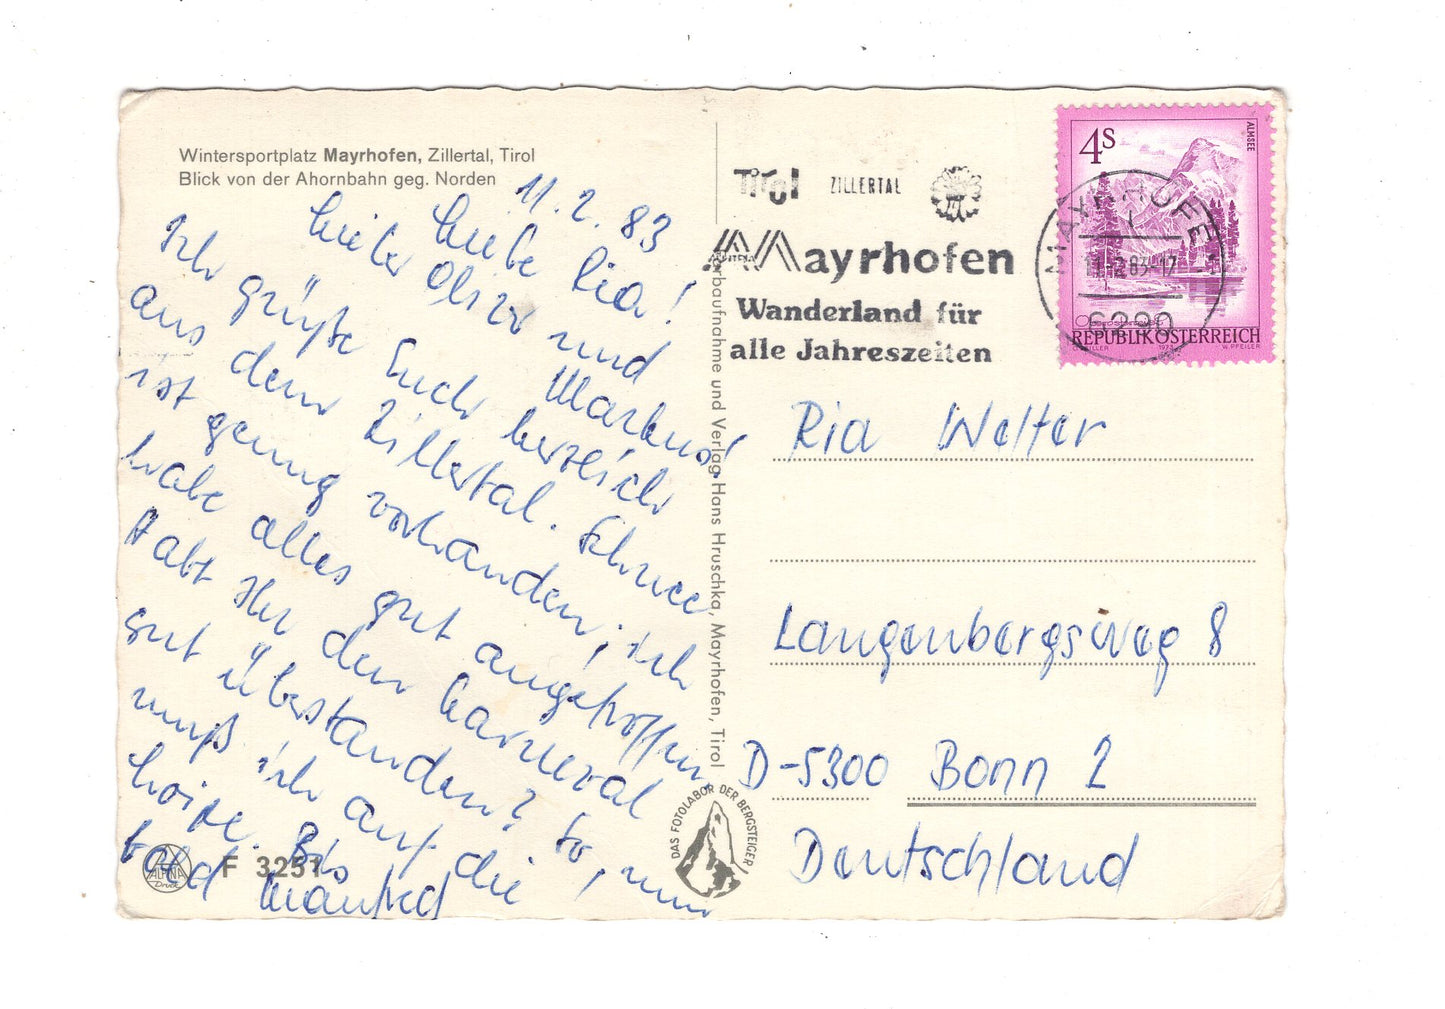 Wintersportplatz Mayrhofen, Zillertal, Tirol
Blick von der Ahornbahn geg. Norden
11. 2. 83
Liebe Ria!
Lieber Oliver und Markus!
Ich grüße Euch herzlich
aus dem Zillertal. Schnee
ist genug vorhanden; ich
habe alles gut angetroffen.
Habt Ihr den Karneval
gut überstanden? So, nun
muß ich auf die
Loipe. Bis
bald Manfred
ALPINA
Druck
F 3251
Farbaufnahme und Verlag Hans Hruschka, Mayrhofen, Tirol
DAS FOTOLABOR DER BERGSTEIGER
Tirol ZILLERTAL
Mayrhofen
Wanderland für
alle Jahreszeiten
4S
ALMSEE
REPUBLIK ÖSTERREICH
1973 W. PFEILER
MAYRHOFEN
11.-2.83-17
6290
Ria Welter
Langenbergsweg 8
D-5300 Bonn 2
Deutschland